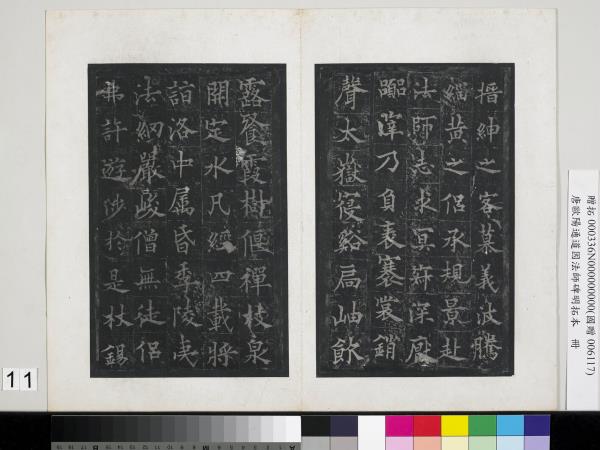 搢紳之客慕義波騰
緇黃之侶承規景赴
法師志求冥寂深厭
囂滓乃負袠褰裳銷
聲太嶽寑谿扃岫飲
露餐霞樹偃禪枝泉
開定水凡經四載將
詣洛中属昏季陵夷
法網嚴峻僧無徒侶
弗許遊涉於是杖錫
贈拓 000336N000000000(國贈 006117)
唐歐陽通道因法師碑明拓本 冊
11